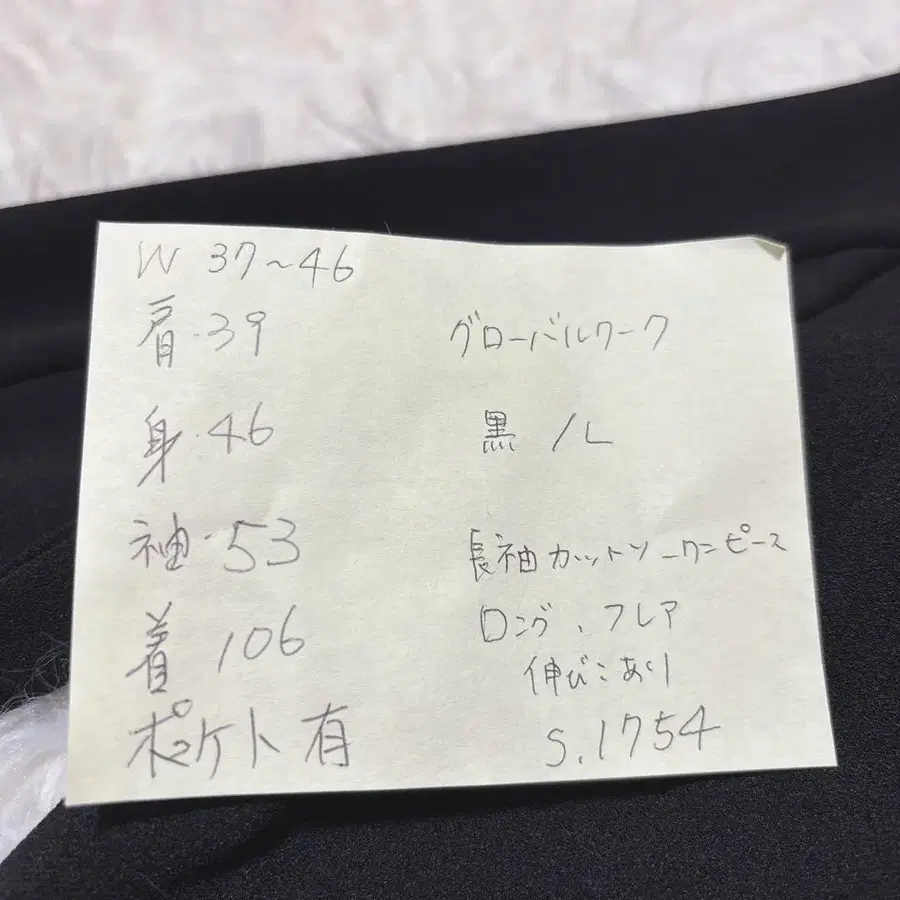 W 37～46
肩・39
身・46
袖・53
着 106
ポケット 有
グローバルワーク
黒 / L
長袖カットソーワンピース
ロング、フレア
伸び:あり
S.1754